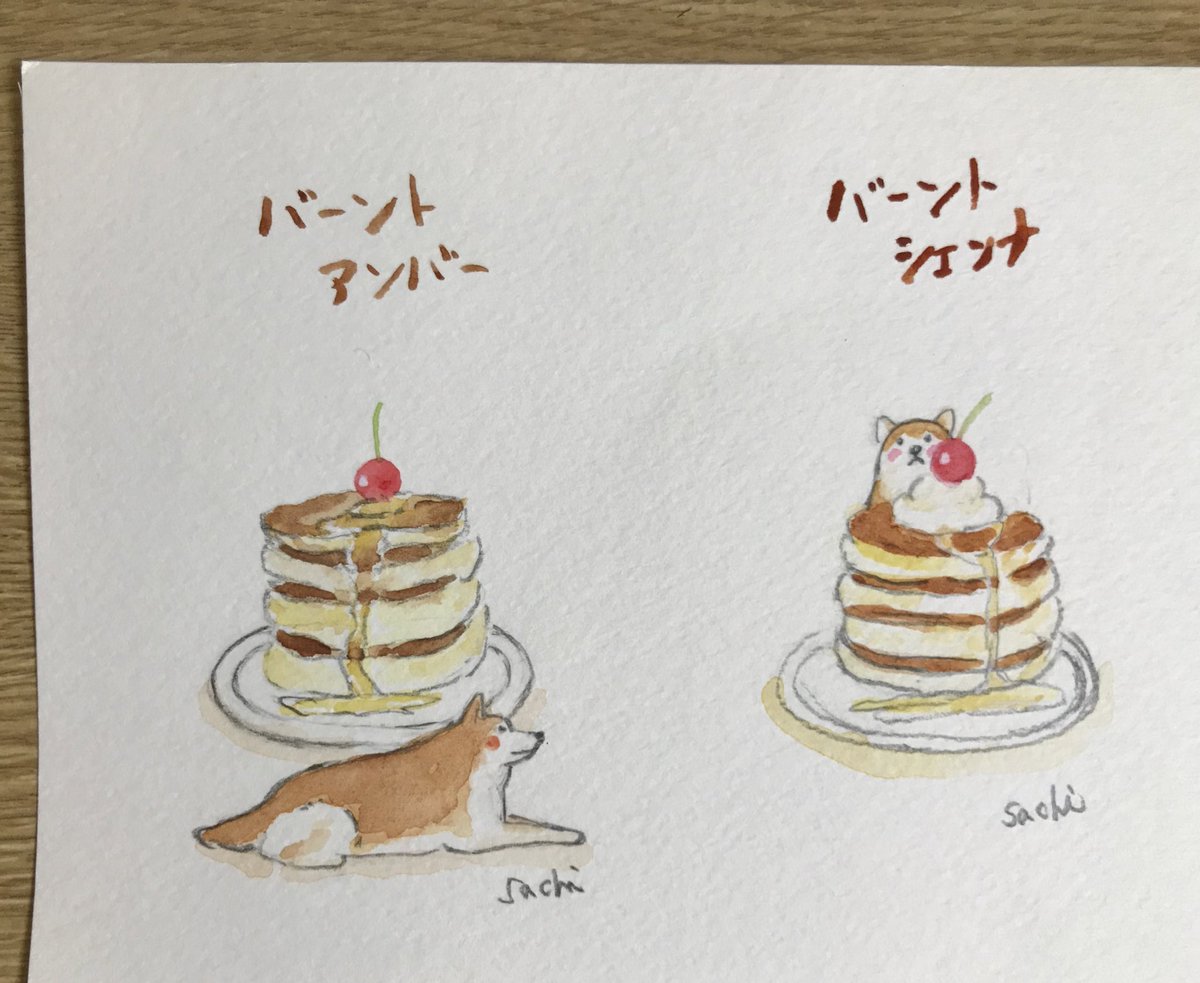 バーント
アンバー
バーント
シェンナ
sachi
sachi